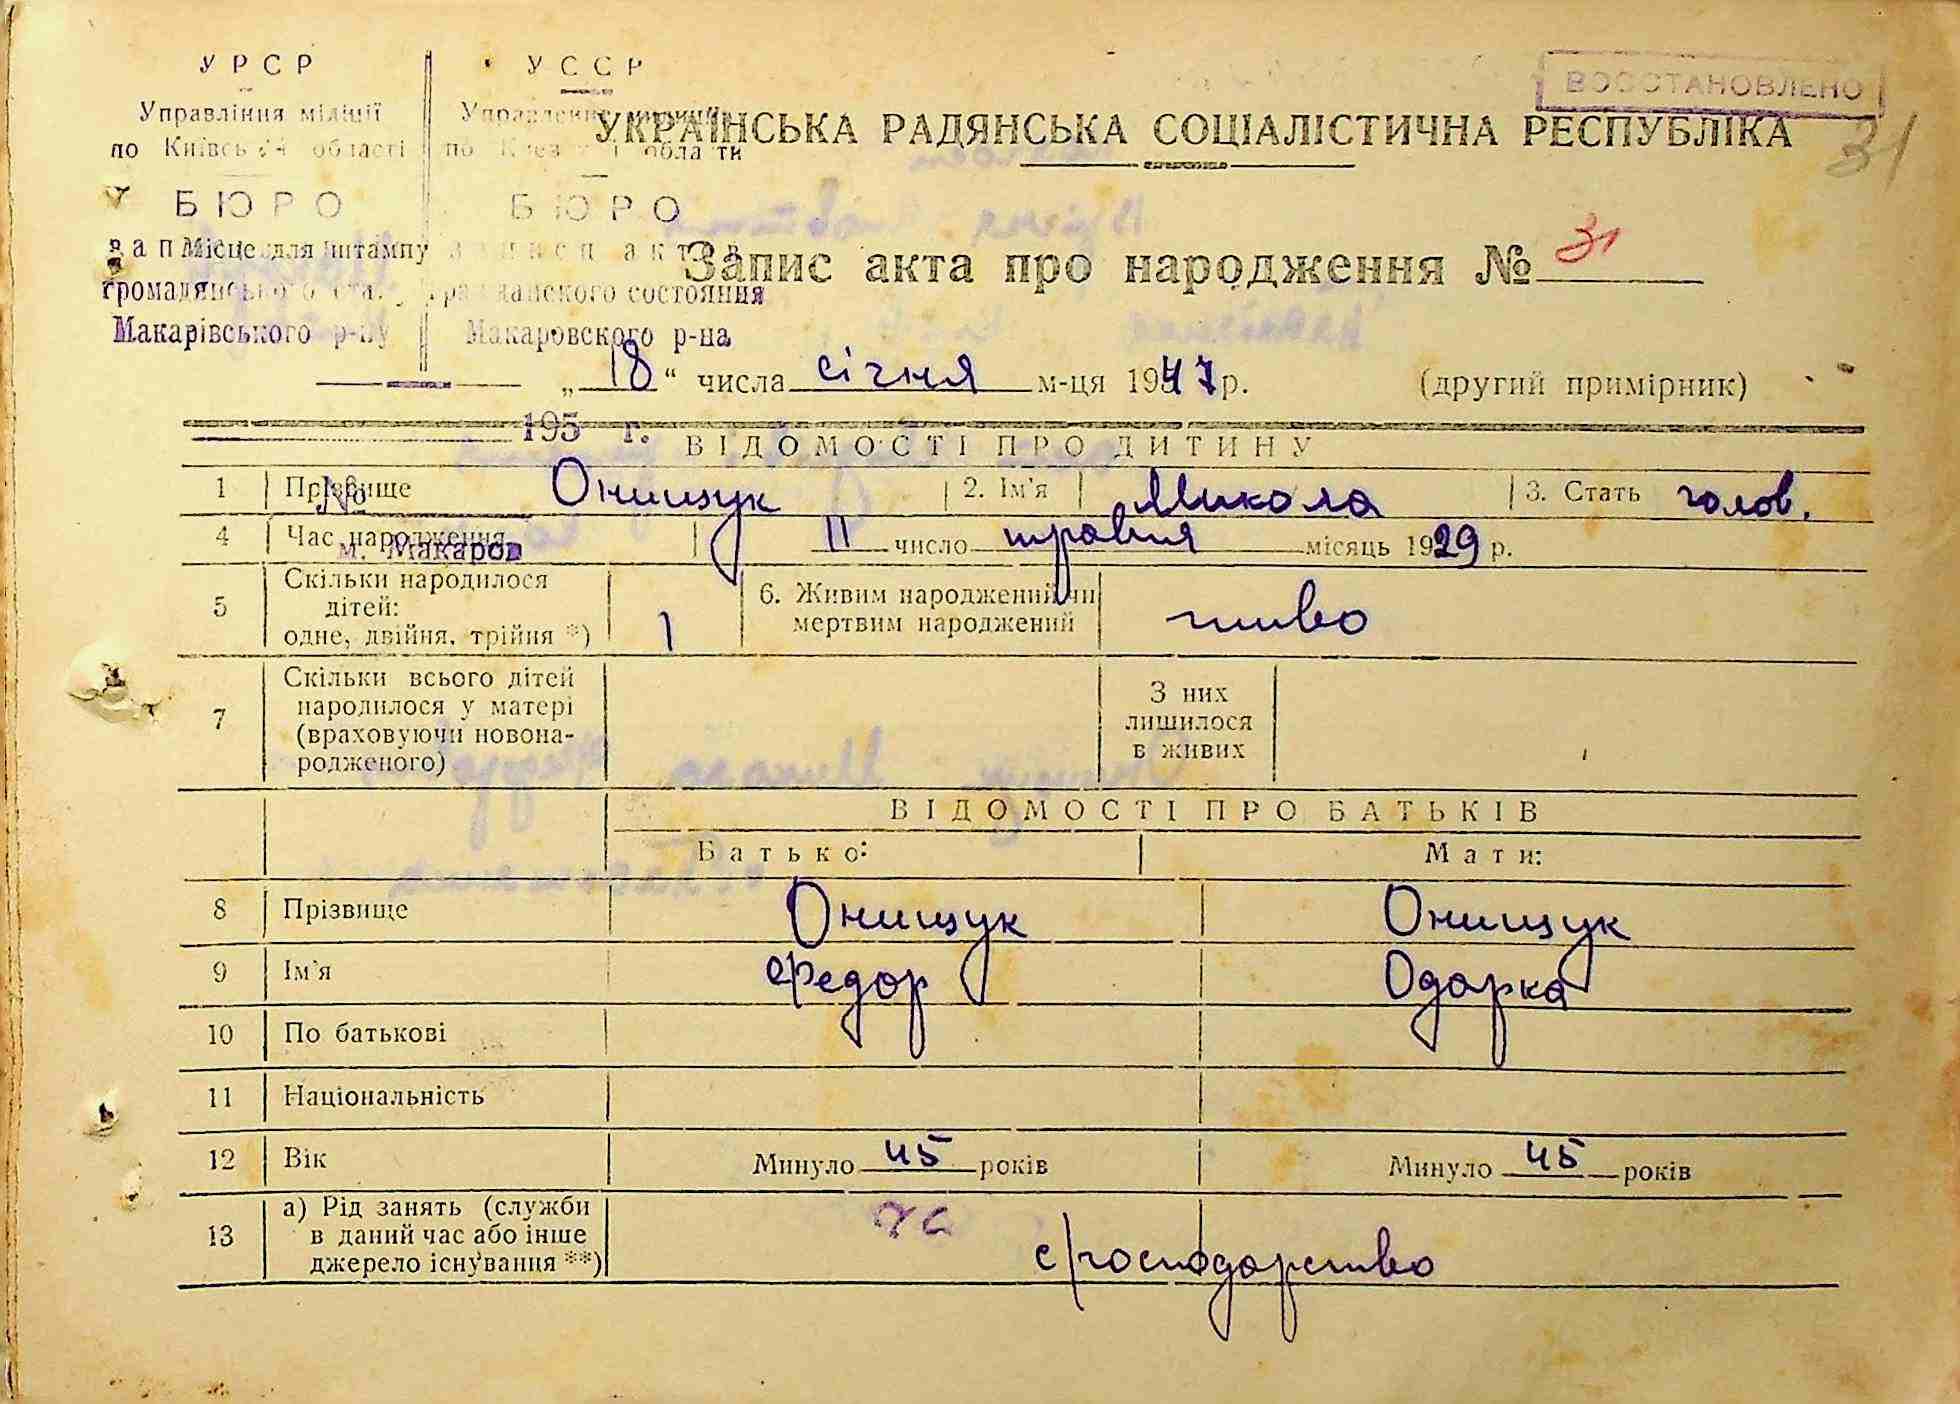 УРСР
Управління міліції
по Київській області
БЮРО
запису актів
громадянського стану
Макарівського р-ну
УССР
Управление милиции
по Киевской области
БЮРО
записи актов
гражданского состояния
Макаровского р-на
195 г.
№
м. Макаров
ВОССТАНОВЛЕНО
31
УКРАЇНСЬКА РАДЯНСЬКА СОЦІАЛІСТИЧНА РЕСПУБЛІКА
Місце для штампу
Запис акта про народження № 31
„18“ числа січня м-ця 1947 р. (другий примірник)
ВІДОМОСТІ ПРО ДИТИНУ
1 Прізвище Онищук 2. Ім'я Микола 3. Стать голов.
4 Час народження 11 число травня місяць 1929 р.
5 Скільки народилося
дітей:
одне, двійня, трійня *) 1
6. Живим народжений чи
мертвим народжений живо
7 Скільки всього дітей
народилося у матері
(враховуючи новона-
родженого)
З них
лишилося
в живих
ВІДОМОСТІ ПРО БАТЬКІВ
Батько: Мати:
8 Прізвище Онищук Онищук
9 Ім'я Федор Одарка
10 По батькові
11 Національність
12 Вік Минуло 45 років Минуло 45 років
13 а) Рід занять (служби
в даний час або інше
джерело існування **)
с/господарство